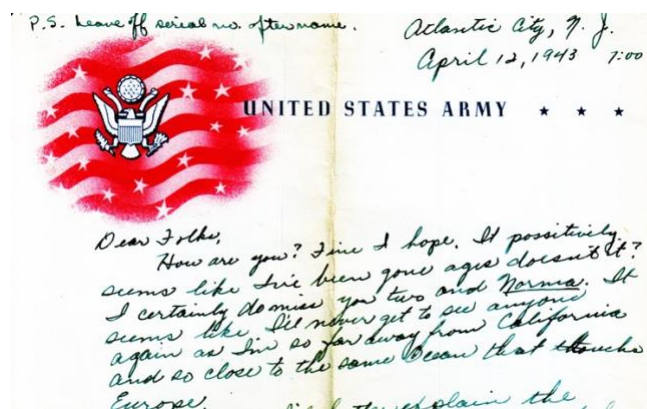 P.S. Leave off serial no. after name.
Atlantic City, N.J.
April 12, 1943 7:00
UNITED STATES ARMY ★ ★ ★
Dear Folks,
How are you? Fine I hope. It possitively
seems like I've been gone ages doesn't it?
I certainly do miss you two and Norma. It
seems like I'll never get to see anyone
again as I'm so far away from California
and so close to the same Ocean that touchs
Europe.
they explain the